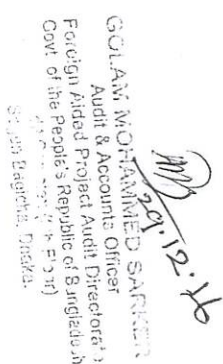 29.12.16
GOLAM MOHAMMED SARKER
Audit & Accounts Officer
Foreign Aided Project Audit Directorate
Govt of the People's Republic of Bangladesh
Floor)
Segun Bagicha, Dhaka.